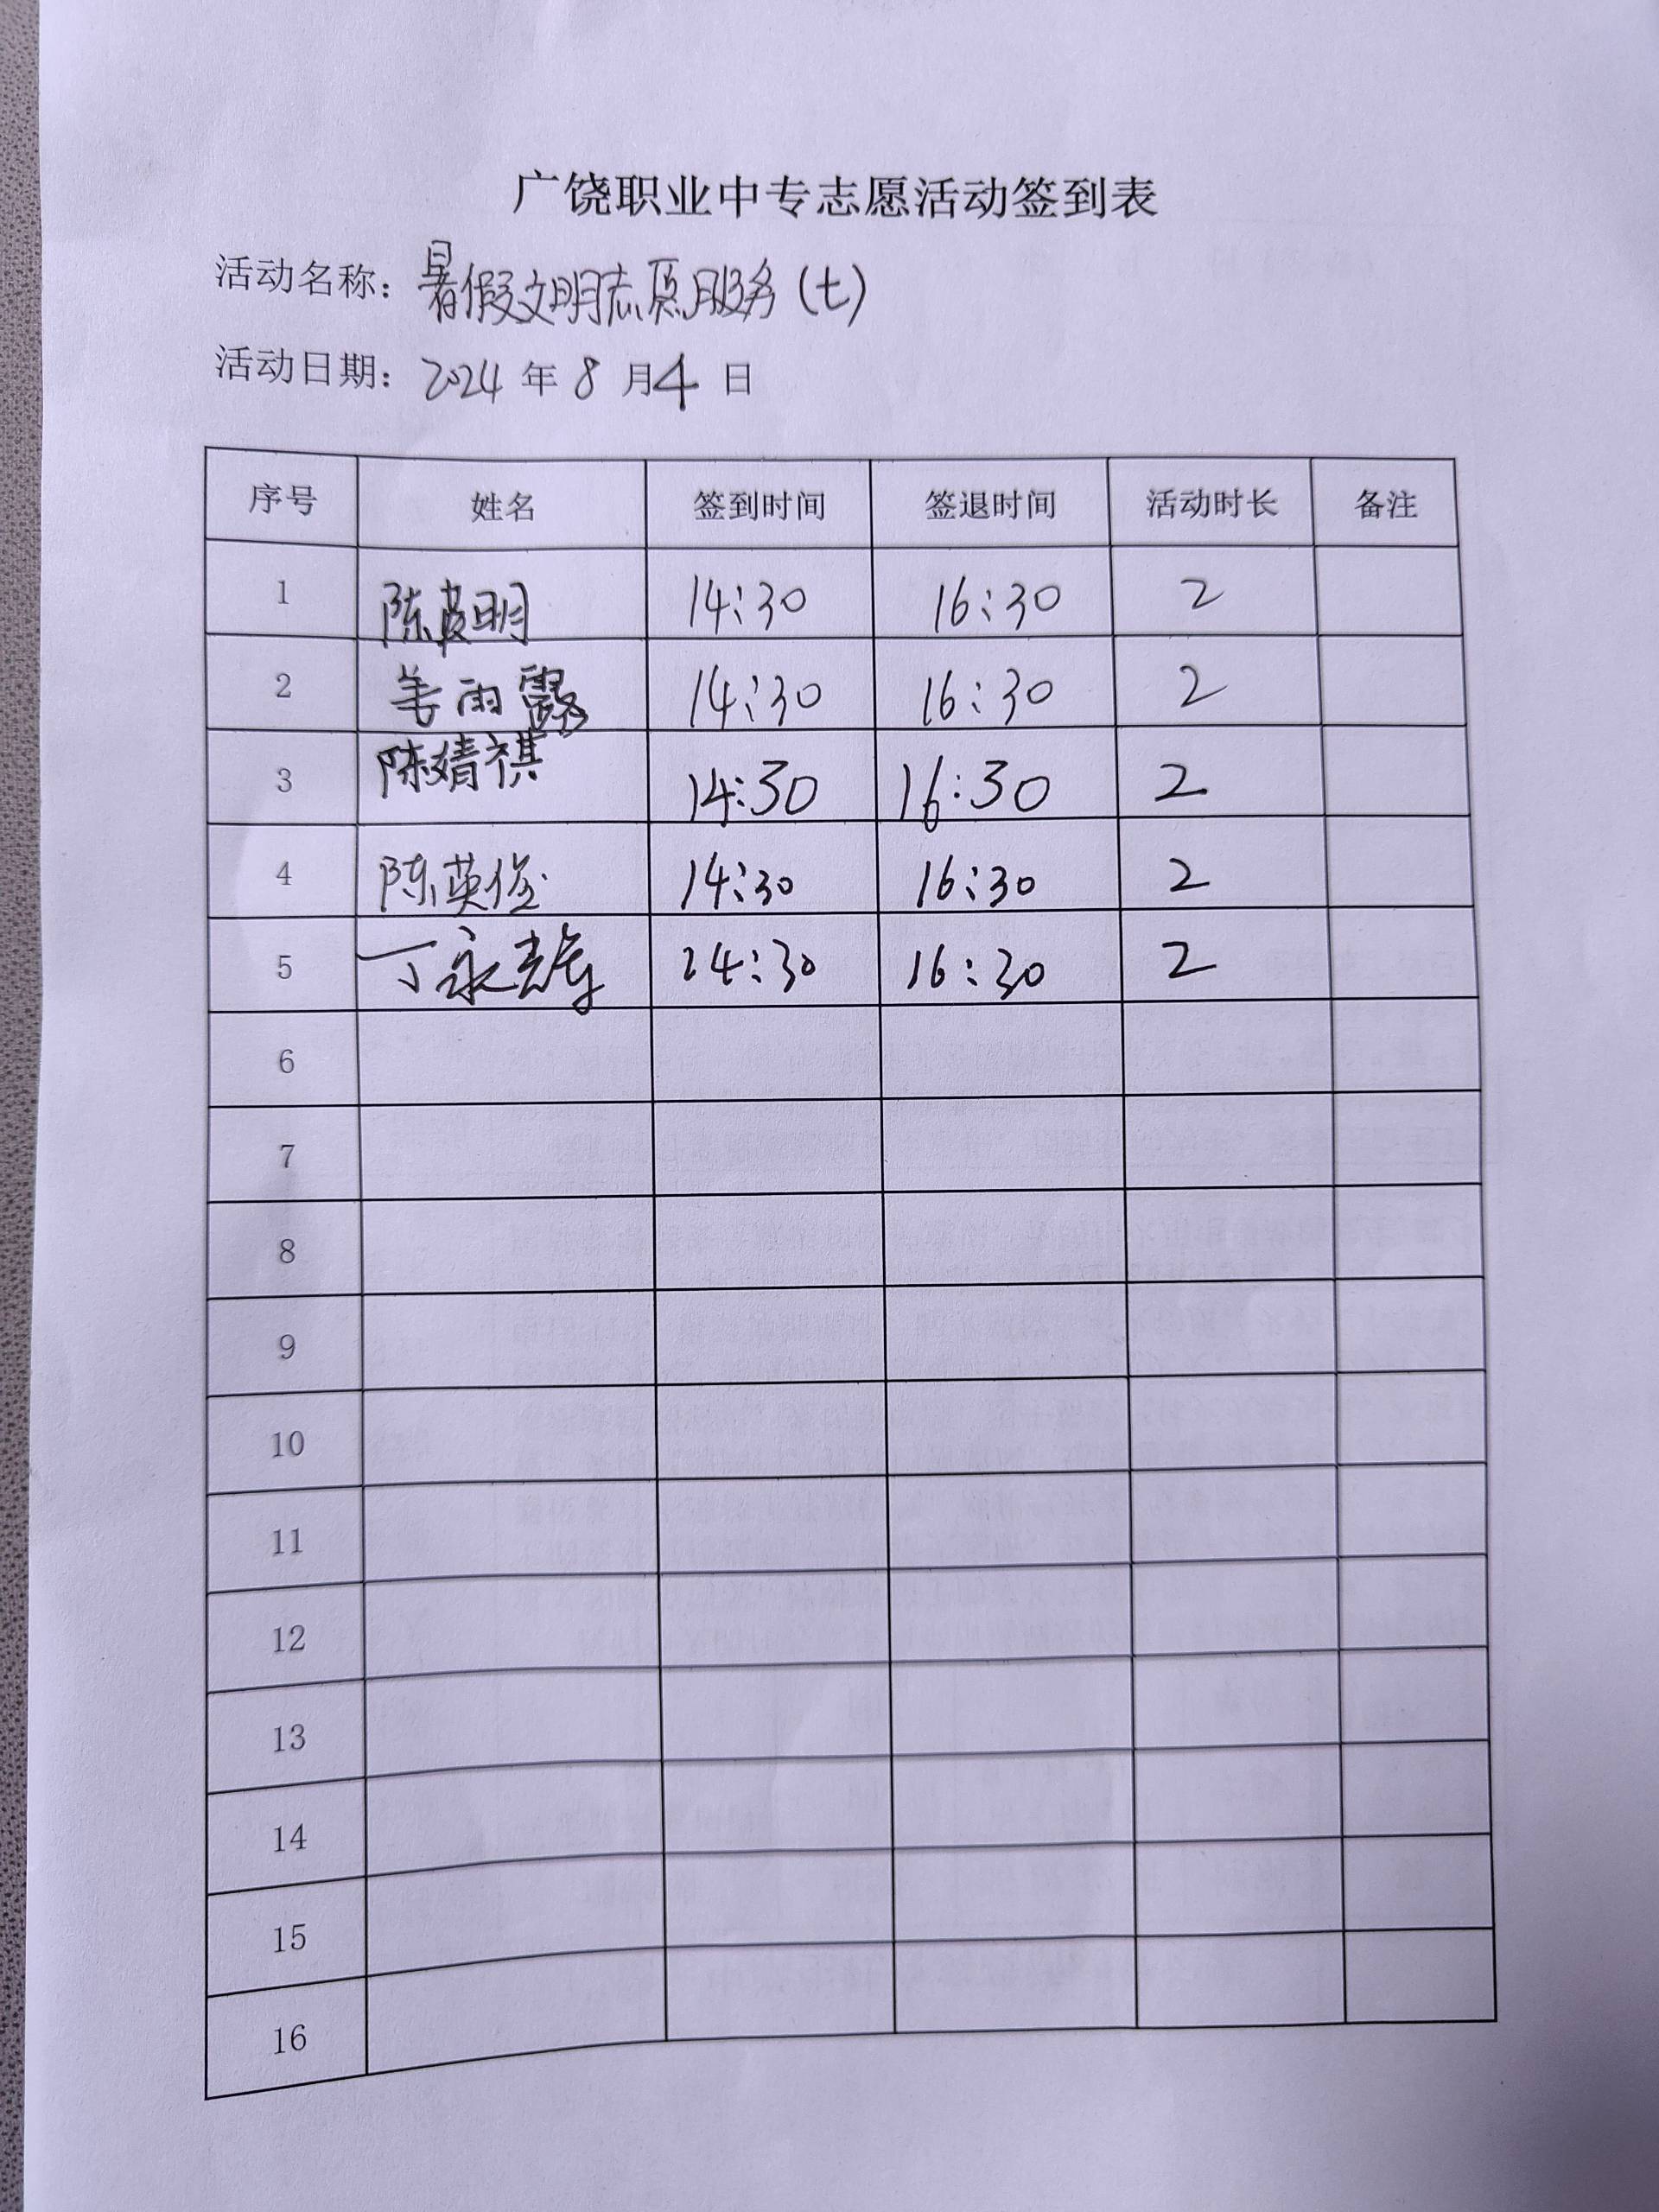 广饶职业中专志愿活动签到表
活动名称：暑假文明志愿服务（七）
活动日期：2024年8月4日
序号 姓名 签到时间 签退时间 活动时长 备注
1 陈茛明 14:30 16:30 2
2 姜雨露 14:30 16:30 2
3 陈婧祺 14:30 16:30 2
4 陈英俊 14:30 16:30 2
5 丁永 14:30 16:30 2
6
7
8
9
10
11
12
13
14
15
16